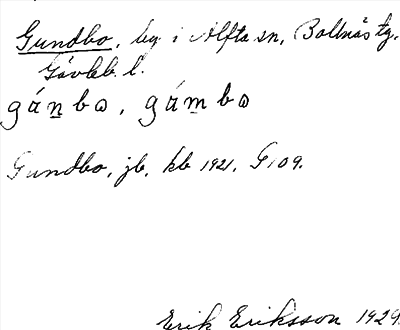 Gundbo, by i Alfta sn, Bollnäs tg,
Gävleb. l.
gánbɷ, gámbɷ
Gundbo, jb, kb 1921. G109.
Erik Eriksson 1929.